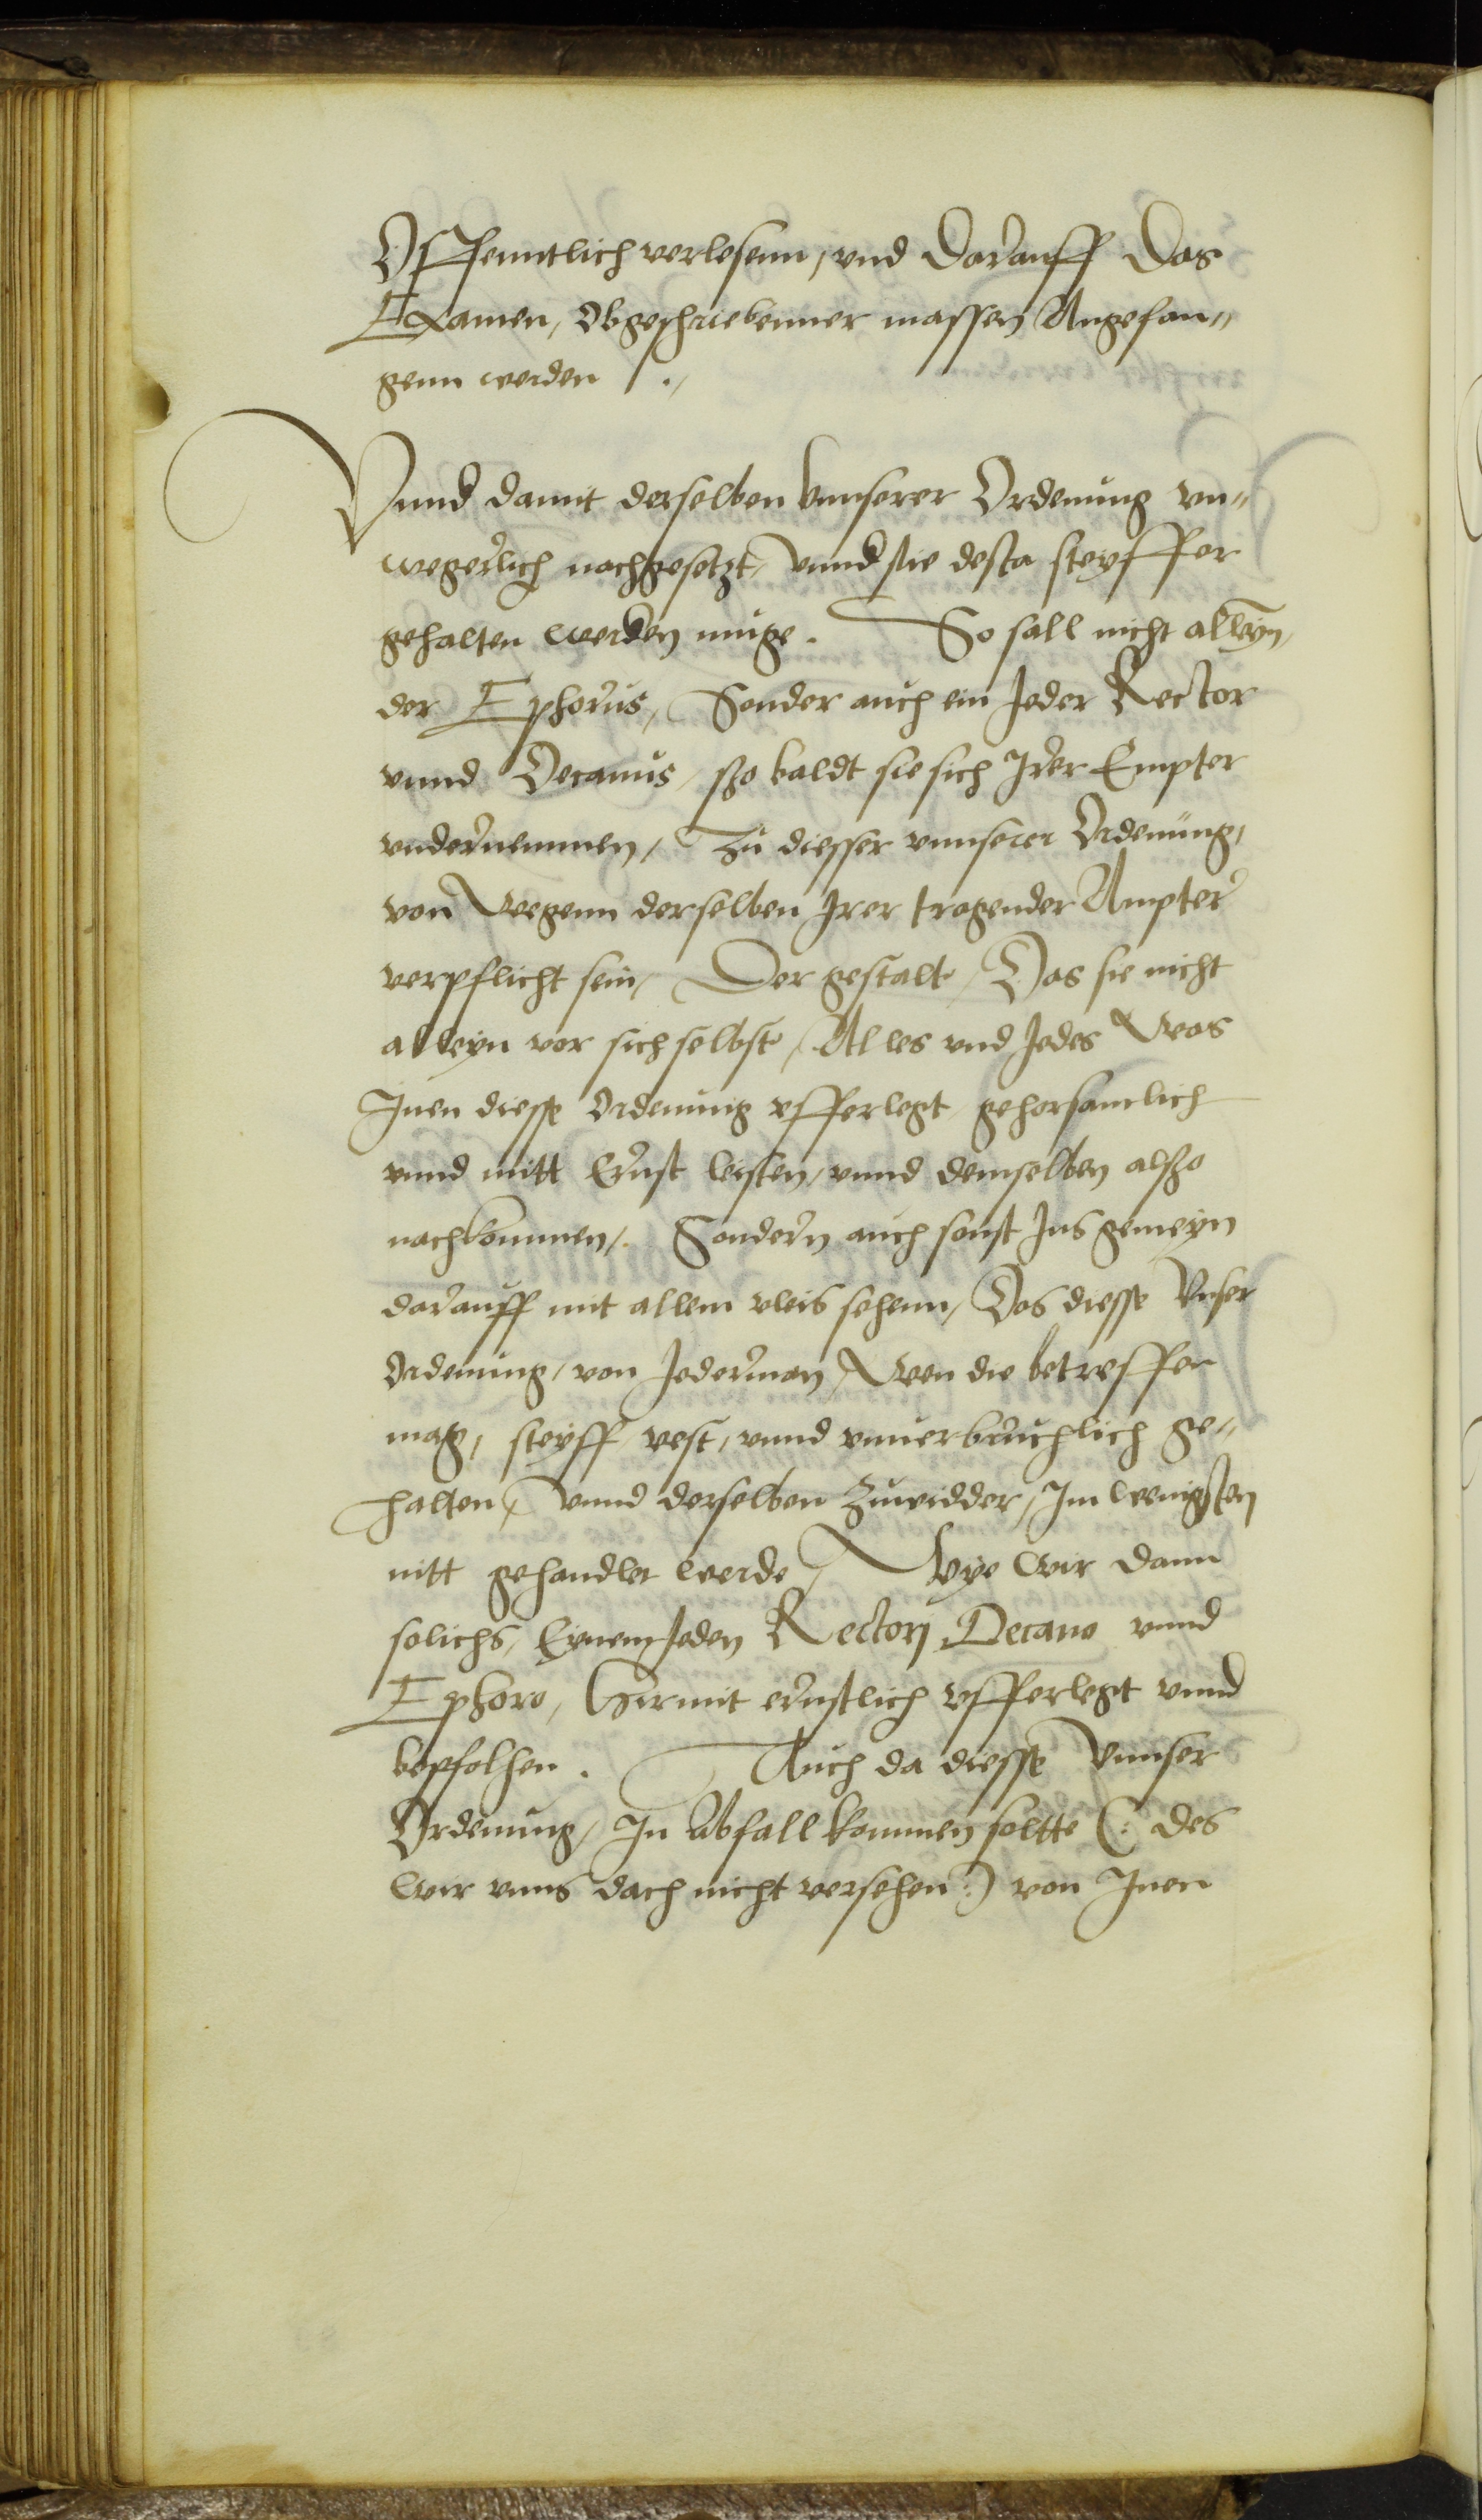 Offenntlich verlesenn, vnd darauff das
Examen, obgeschriebenner massen Angefan„
genn werden ./
Vnnd damit derselben vnnserer Ordenung vn„
wegerlich nachgesetzt, vnnd sie desta steyffer
gehalten werden muge. So sall nicht alleyn,
der Ephorus, Sonder auch ein Jeder Rector
vnnd Decanus, sso baldt sie sich Irer Empter
vndernemmen, Zu diesser vnnserer Ordenung,
von Weegenn derselben Irer tragender Ampter
verpflicht sein, Der gestalt, Das sie nicht
alleyn vor sich selbst, Alles vnd Jedes Was
Inen diesse Ordenung vfferlegt gehorsamlich
vnnd mitt Ernst leisten, vnnd demselben alsso
nachkommen, Sondern auch sonst Ins gemeyn
darauff mit allem vleis sehenn, Das diesse Vnser
Ordenung, von Jederman, Wen die betreffen
mag, steyff vest, vnnd vnuerbruchlich ge„
halten, vnnd derselben Zuwidder, Im wenigsten
nitt gehandlet werde, Wye wir dann
solichs, Eynem Jeden Rectorj Decano vnnd
Ephoro, Hiermit ernstlich vfferlegt vnnd
bepfolhen. Auch da diesse vnnser
Ordenung, In Abfall kommen soltte (: des
wir vnns dach nicht versehen :) von Inen